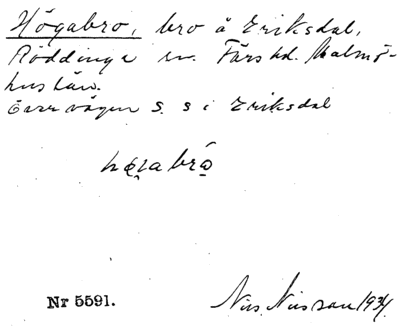 Högabro, bro å Eriksdal,
Röddinge sn. Färs hd. Malmö-
hus län.
över vägen s. s i Eriksdal
Nr 5591.
Nils Nilsson 1934.